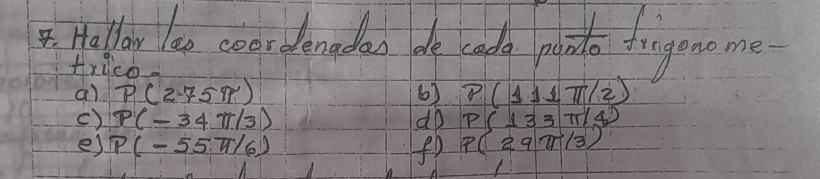 7. Hallar las coordenadas de cada punto trigonome-
trico.
a) P(275π) b) P(111π/2)
c) P(-34π/3) d) P(133π/4)
e) P(-55π/6) f) P(29π/3)